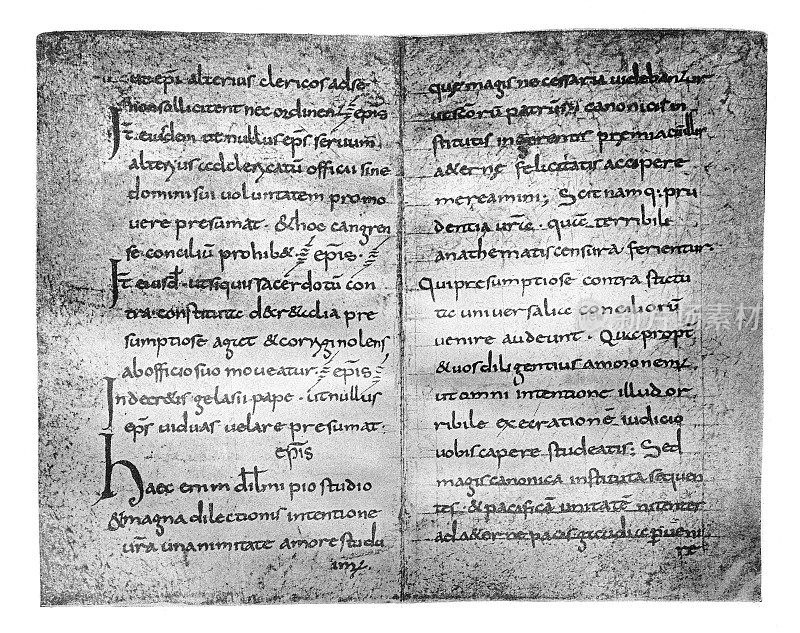 ut epi alterius clericos ad se
sollicitent nec ordinent epis
It eiusdem ut nullus eps servum
alterius ad clericatū officii sine
domini sui voluntatem promo
vere presumat · & hoc in cangren
se conciliū prohib& · epis ·
It eiusd ut siquis sacerdotū con
tra constituta decr&alia pre
sumptiose agat & corrigi nolens
ab officio suo moveatur · epis
In decr&is gelasii pape · ut nullus
eps viduas velare presumat ·
epis
haec enim dil mi pio studio
& magna dilectionis intentione
vra unanimitate amore studu
im;
que magis necessaria videbantur
ut scorū patrū canonicis in
stitutis premia
a&erne felicitatis accipere
mereamini; Scit namq; pru
dentia vra · quā terribile
anathematis censura feriuntur ·
Qui presumptiose contra statu
ta universaliū conciliorū
venire audeunt · Quapropt
& vos diligentius amonem;
ut omni intentione illud or
ribile execrationē iudicio
vobis capere studeatis; Sed
magis canonica instituta sequen
tes · & pacificā unitatē nitentes
ad a&erne pacis gaudia pveni
re